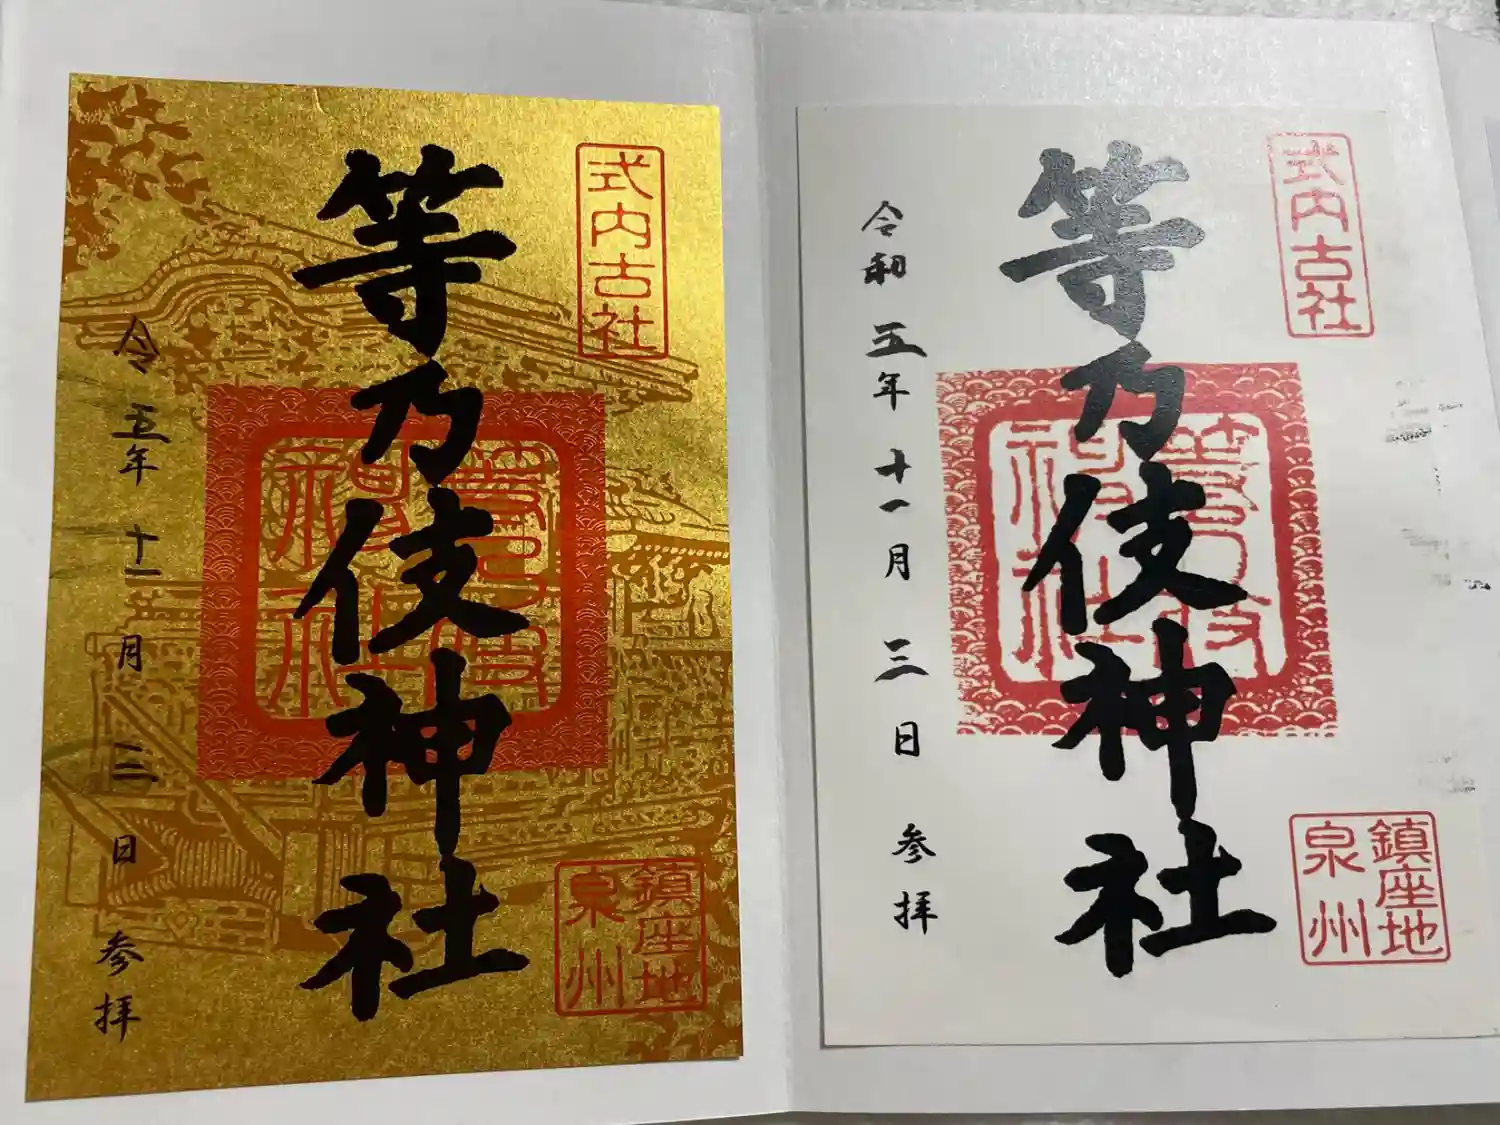 式内古社
等乃伎神社
等乃伎神社
鎮座地
泉州
令 五年 十一月 三日 参拝
式内古社
等乃伎神社
等乃伎神社
鎮座地
泉州
令和 五年 十一月 三日 参拝